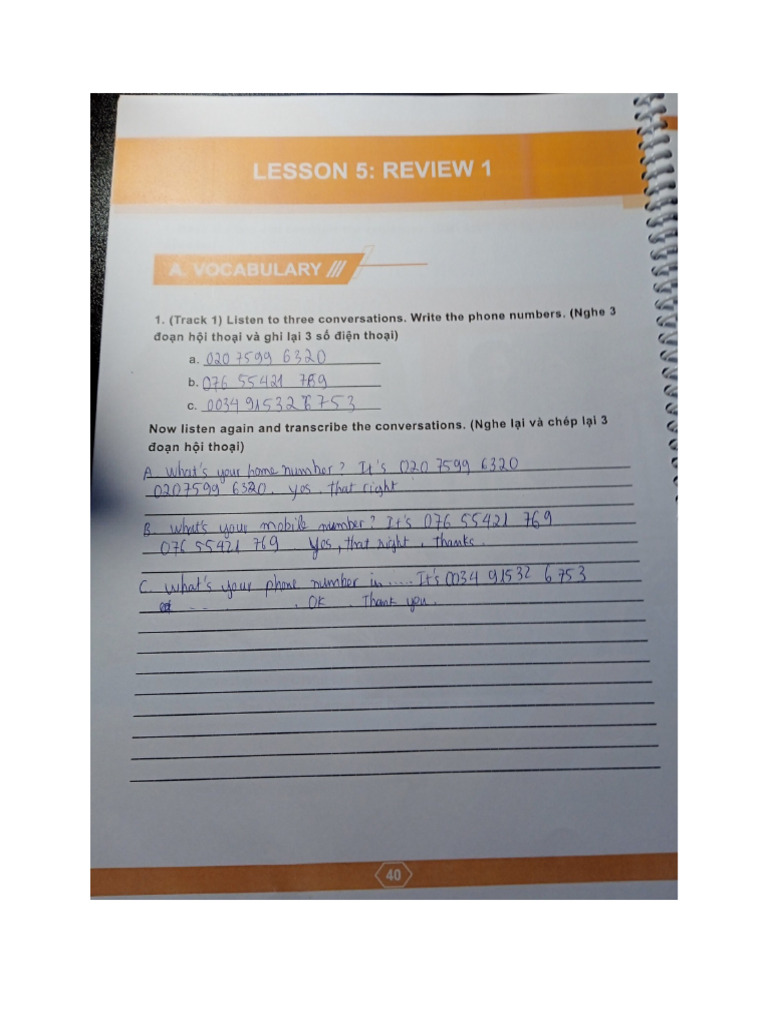 LESSON 5: REVIEW 1
A. VOCABULARY
1. (Track 1) Listen to three conversations. Write the phone numbers. (Nghe 3
đoạn hội thoại và ghi lại 3 số điện thoại)
a. 020 7599 6320
b. 076 55421 769
c. 0034 91532 6753
Now listen again and transcribe the conversations. (Nghe lại và chép lại 3
đoạn hội thoại)
A. What's your home number? It's 020 7599 6320
020 7599 6320. yes. that right
B. what's your mobile number? It's 076 55421 769
076 55421 769 yes, that right, thanks.
C. what's your phone number in ..... It's 0034 91532 6753
.. . OK. Thank you.
40